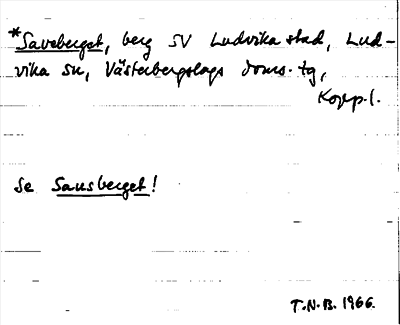 *Saveberget, berg SV Ludvika stad, Lud-
vika sn, Västerbergslags doms. tg,
Kopp. l.
Se Sausberget!
T.N.B. 1966.